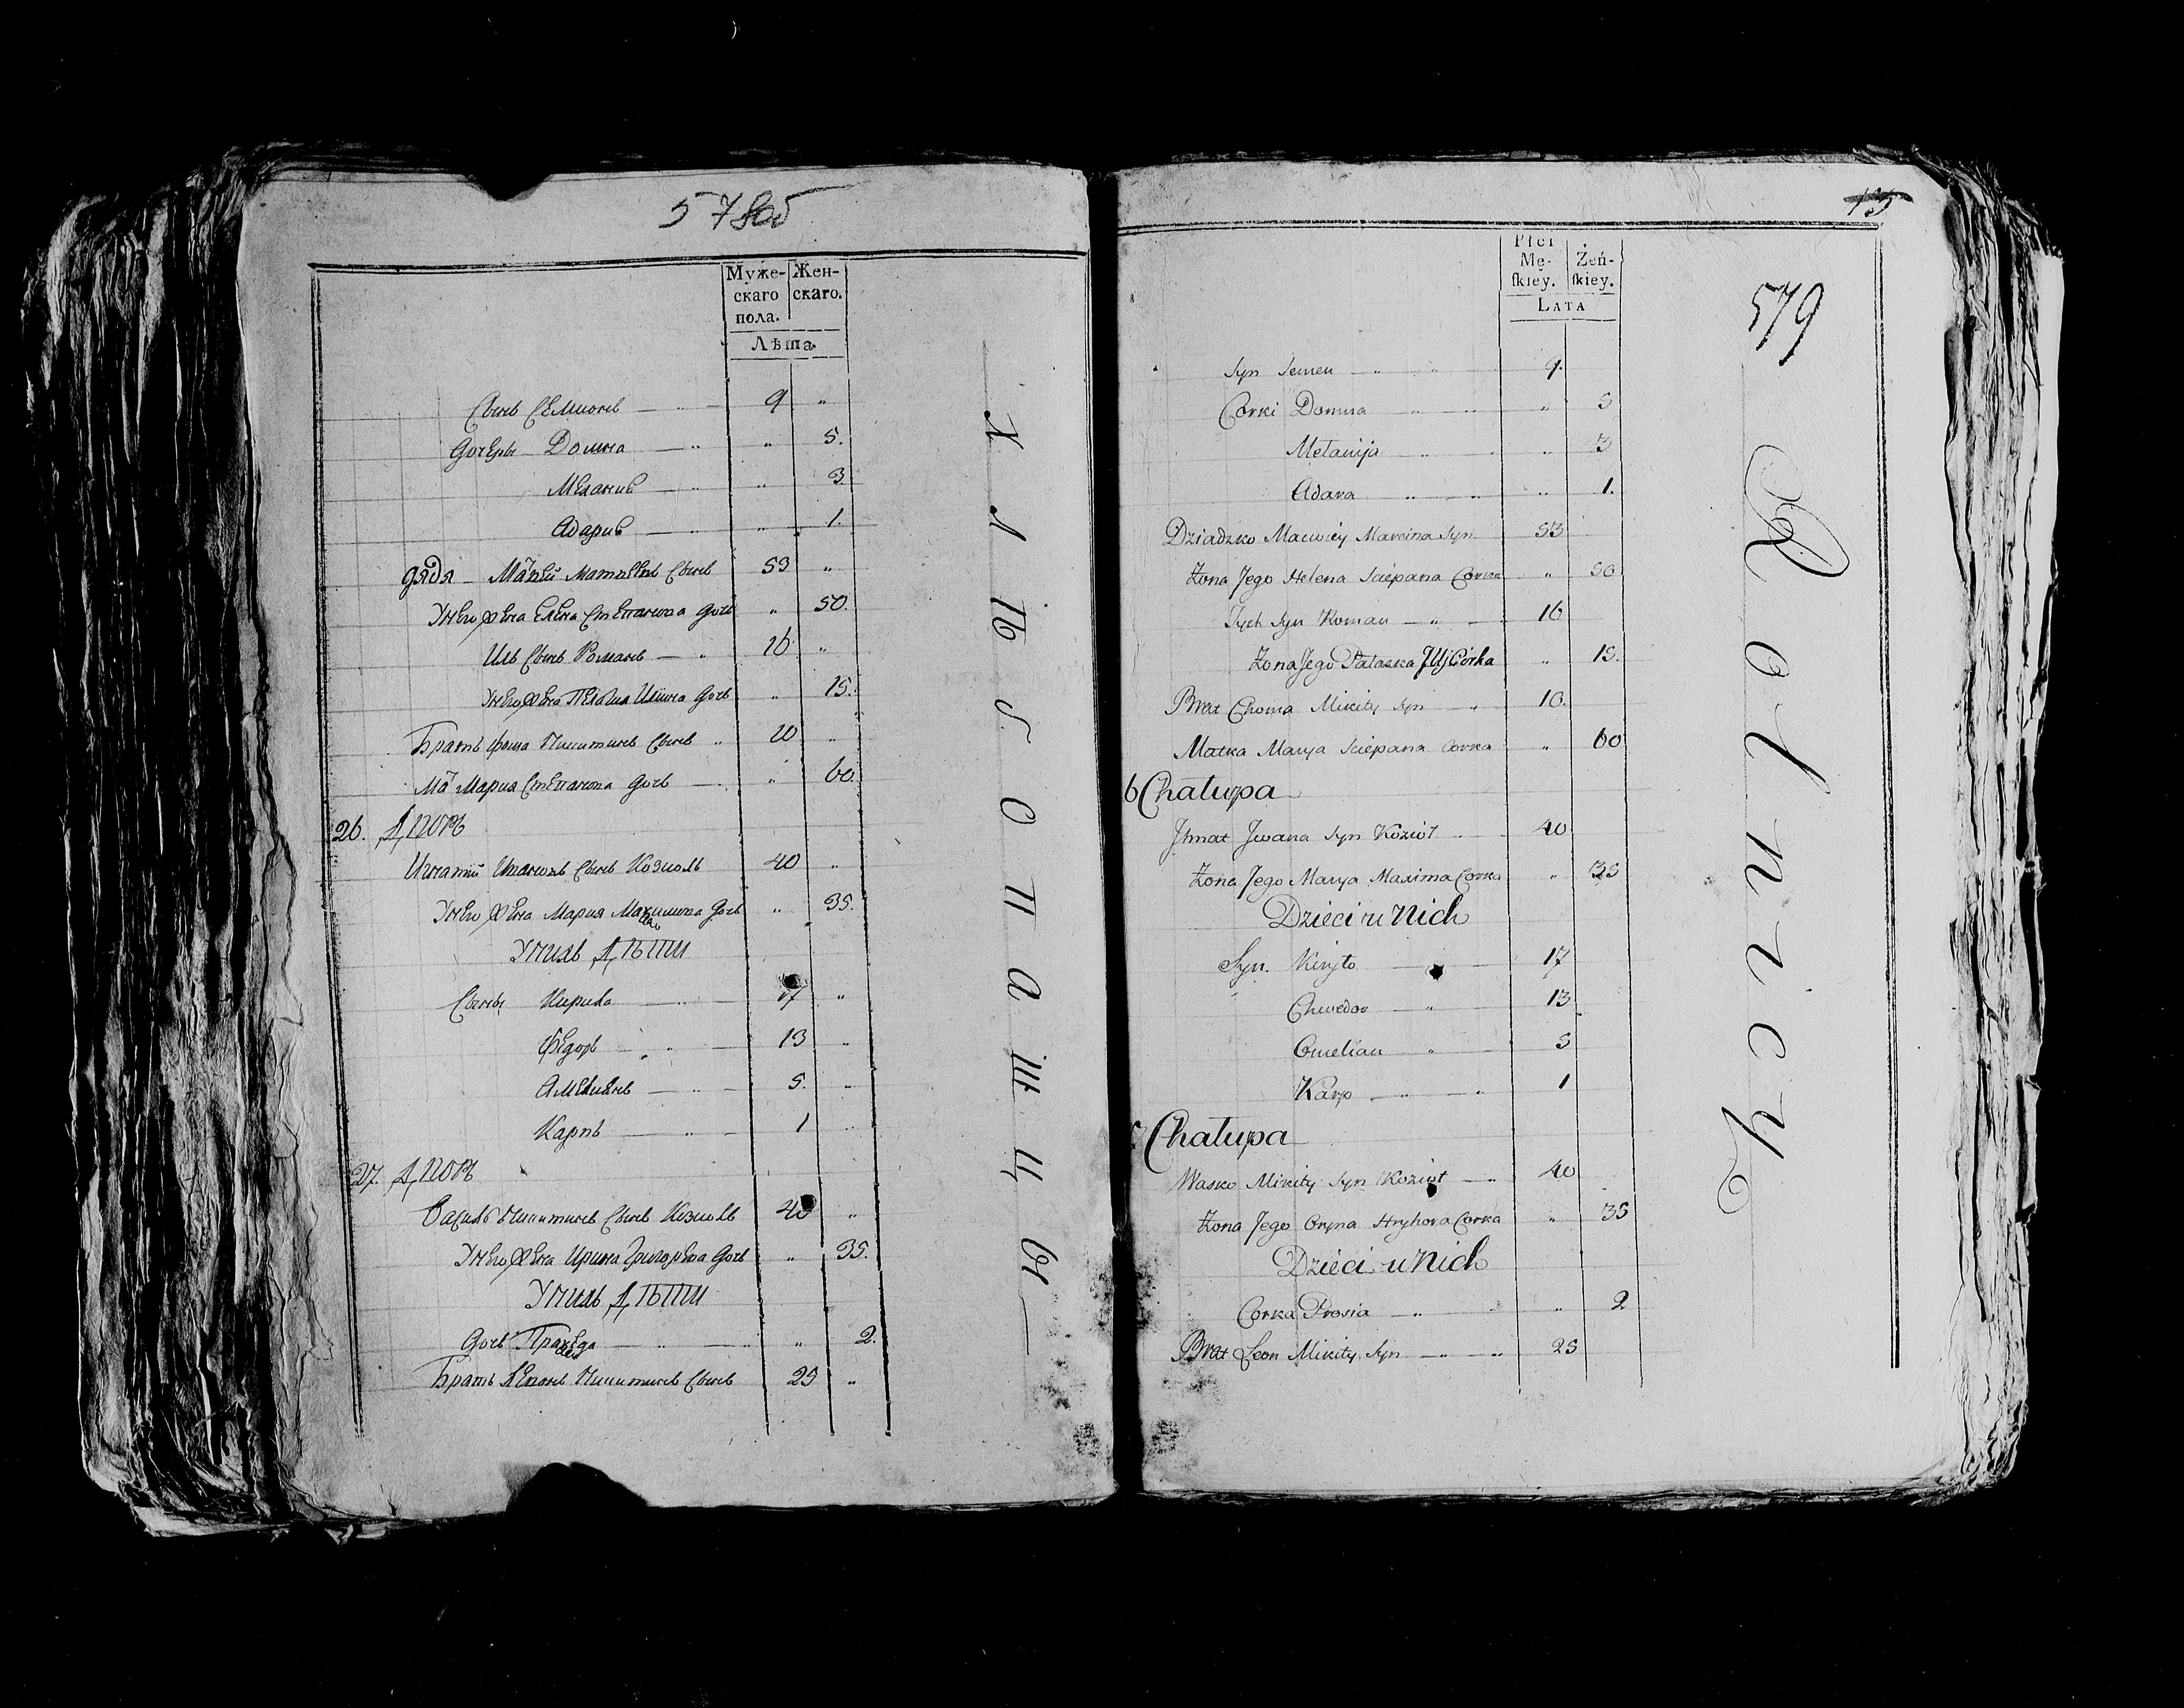 578об
Муже-
скаго
пола.
Жен-
скаго.
Лѣта.
Сынъ Семионъ 9 "
Дочеры Домна " 5.
Мелания " 3
Адария " 1.
Дядя Матвеевъ Сынъ 53 "
У него жена Елена Степанова дочь " 50.
Ихъ Сынъ Романъ 16 "
У него жена Пелагия дочь " 15.
Братъ Фома Никитинъ Сынъ " 10 "
Мать Мария Степанова дочь " 60.
26. Дворъ
Игнатий Ивановъ Сынъ Козиолъ 40 "
У него жена Мария Максимова дочь " 35.
У нихъ Дѣти
Сыны Кирила 17 "
Федоръ 13 "
Амелиянъ 5. "
Карпъ 1 "
27. Дворъ
Василь Никитинъ Сынъ Козиолъ 40 "
У него жена Ирина Григорева дочь " 35.
У нихъ Дѣти
Дочь " 2.
Братъ Леонъ Никитинъ Сынъ 25 "
Хлѣбопашцы
15
579
Płci
Mę-
skiey.
Żeń-
skiey.
Lata
Syn Semen 9.
Corki Domna " 5
Mełanija " 3
Adara " 1.
Dziadzko Maciwiey Marcina Syn 53
Żona Jego Helena Sciepana Corka " 50
Jych Syn Roman 16
Żona Jego Pałaska Jllj Córka " 15.
Brat Choma Mikity Syn 10.
Matka Marya Sciepana Corka " 60
6 Chałupa
Jhnat Jwana Syn Kozioł 40
Żona Jego Marya Maxima Corka " 35
Dzieci u Nich
Syn. Kiryło 17
Chwedor 13
Omelian 5
Karp 1
7 Chałupa
Wasko Mikity Syn Kozioł 40
Żona Jego Oryna Hryhora Corka " 35
Dzieci u Nich
Corka Prosia " 2
Brat Leon Mikity Syn 25
Rolnicy